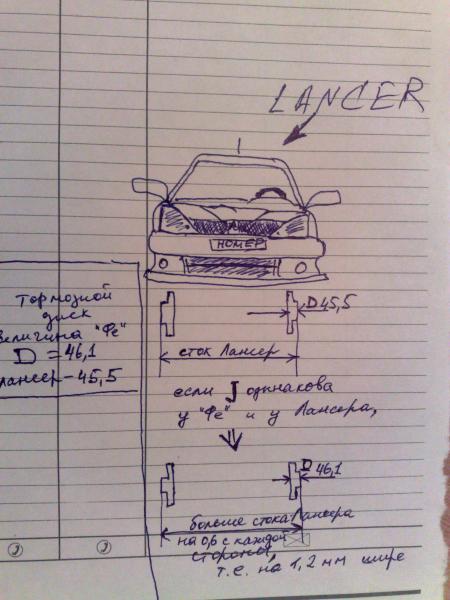 LANCER
НОМЕР
Тормозной
диск
величина "Фе"
D = 46,1
Лансер - 45,5
D 45,5
сток Лансер
если J одинакова
у "Фе" и у Лансера,
D 46,1
больше стока Лансера
на 0,6 с каждой
стороны,
т.е. на 1,2 мм шире